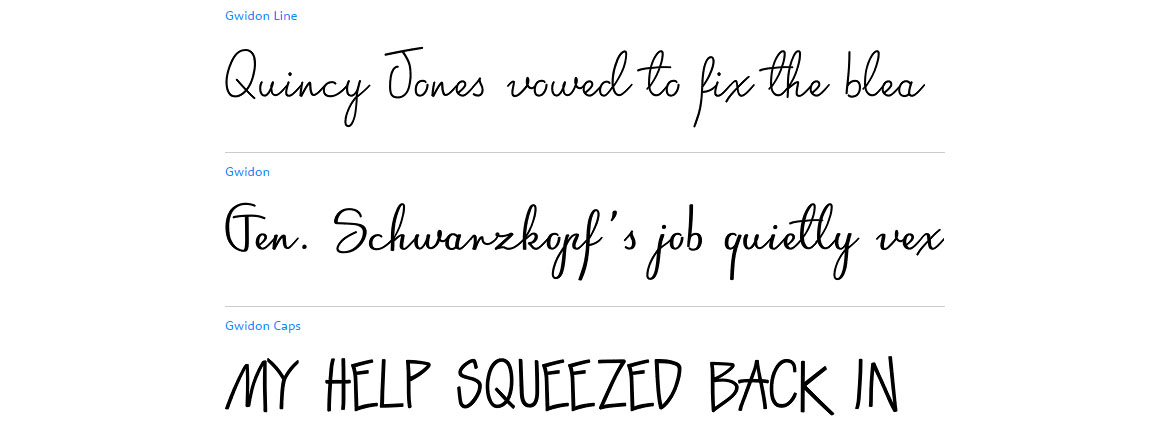 Gwidon Line
Quincy Jones vowed to fix the blea
Gwidon
Gen. Schwarzkopf's job quietly vex
Gwidon Caps
MY HELP SQUEEZED BACK IN